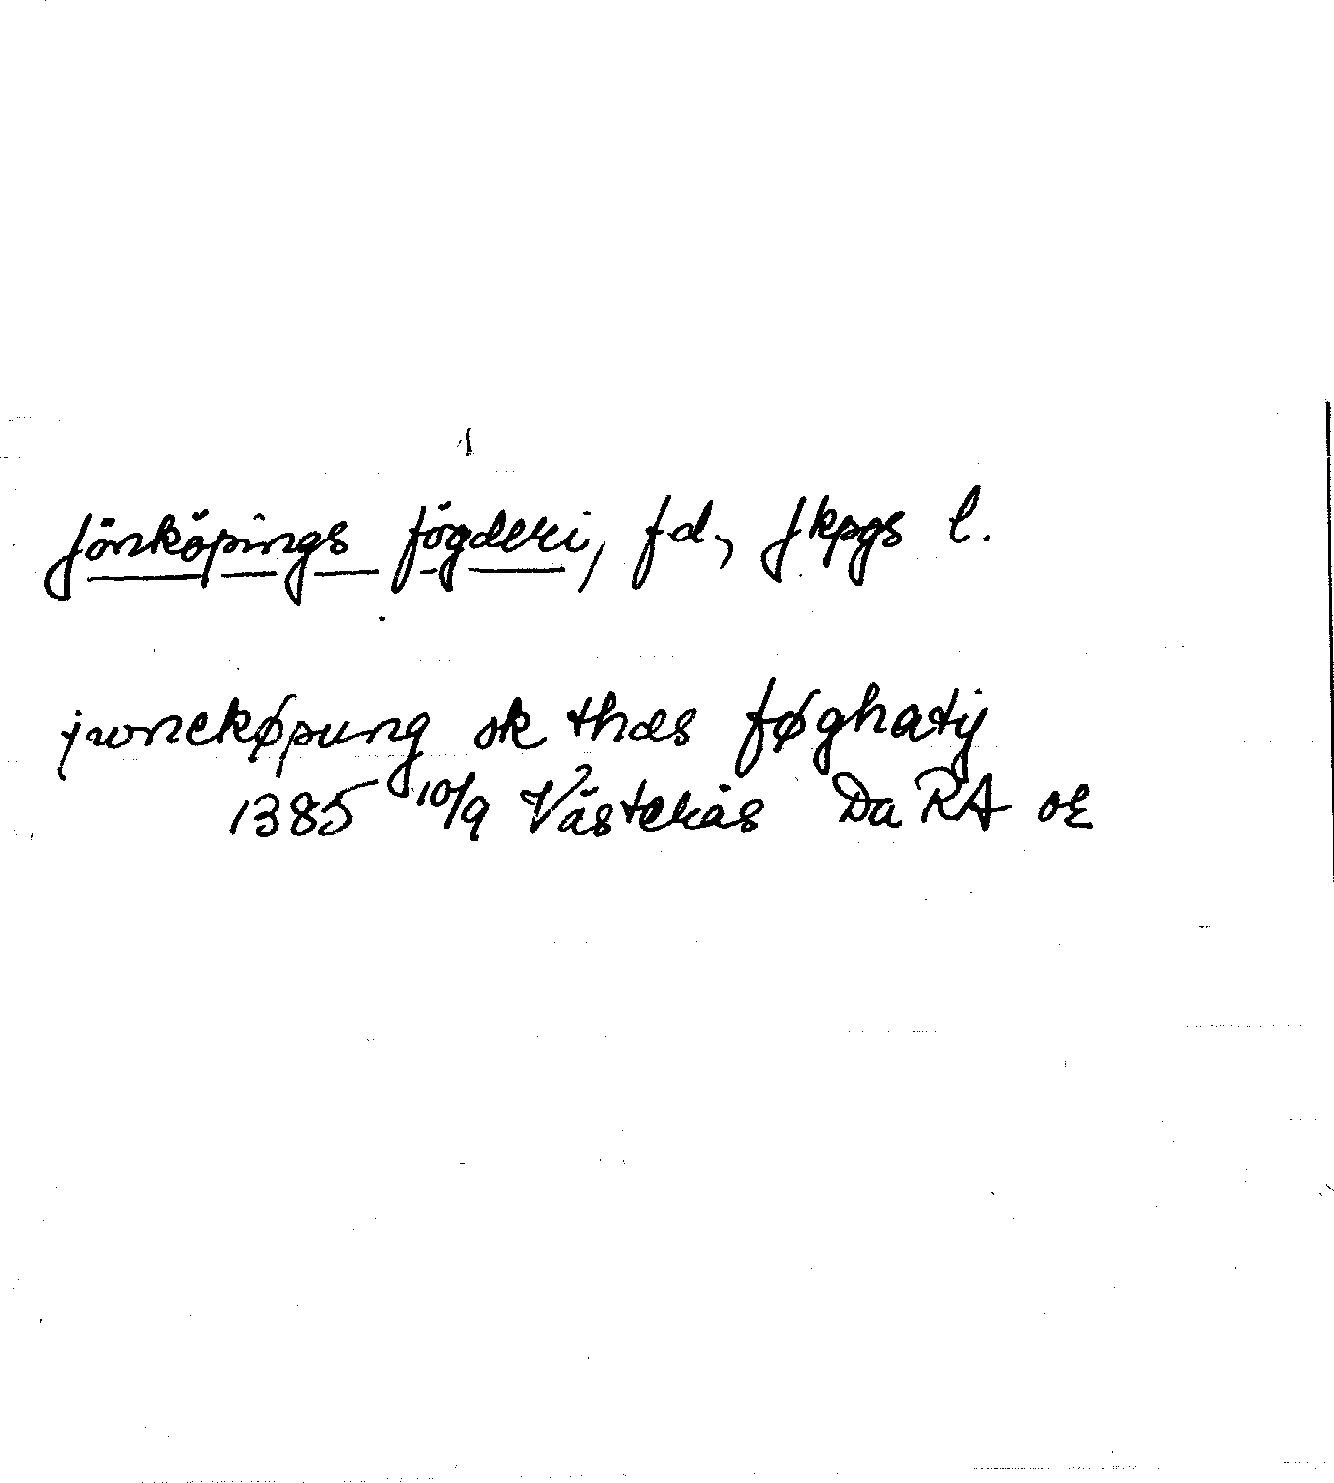 Jönköpings fögderi, fd, Jkpgs l.
junekøpung ok thæs føghatij
1385 10/9 Västerås Da RA or